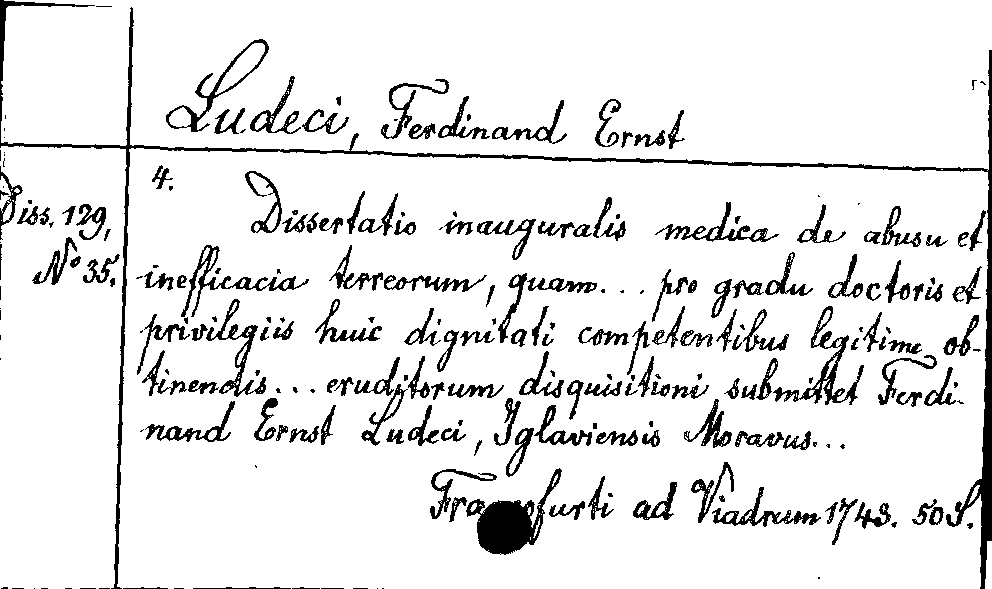 Ludeci, Ferdinand Ernst
4.
Diss. 129,
No 35.
Dissertatio inauguralis medica de abusu et
inefficacia terreorum, quam... pro gradu doctoris et
privilegiis huic dignitati competentibus legitime ob-
tinendis... eruditorum disquisitioni submittet Ferdi-
nand Ernst Ludeci, Iglaviensis Moravus...
Francofurti ad Viadrum 1743. 50 S.